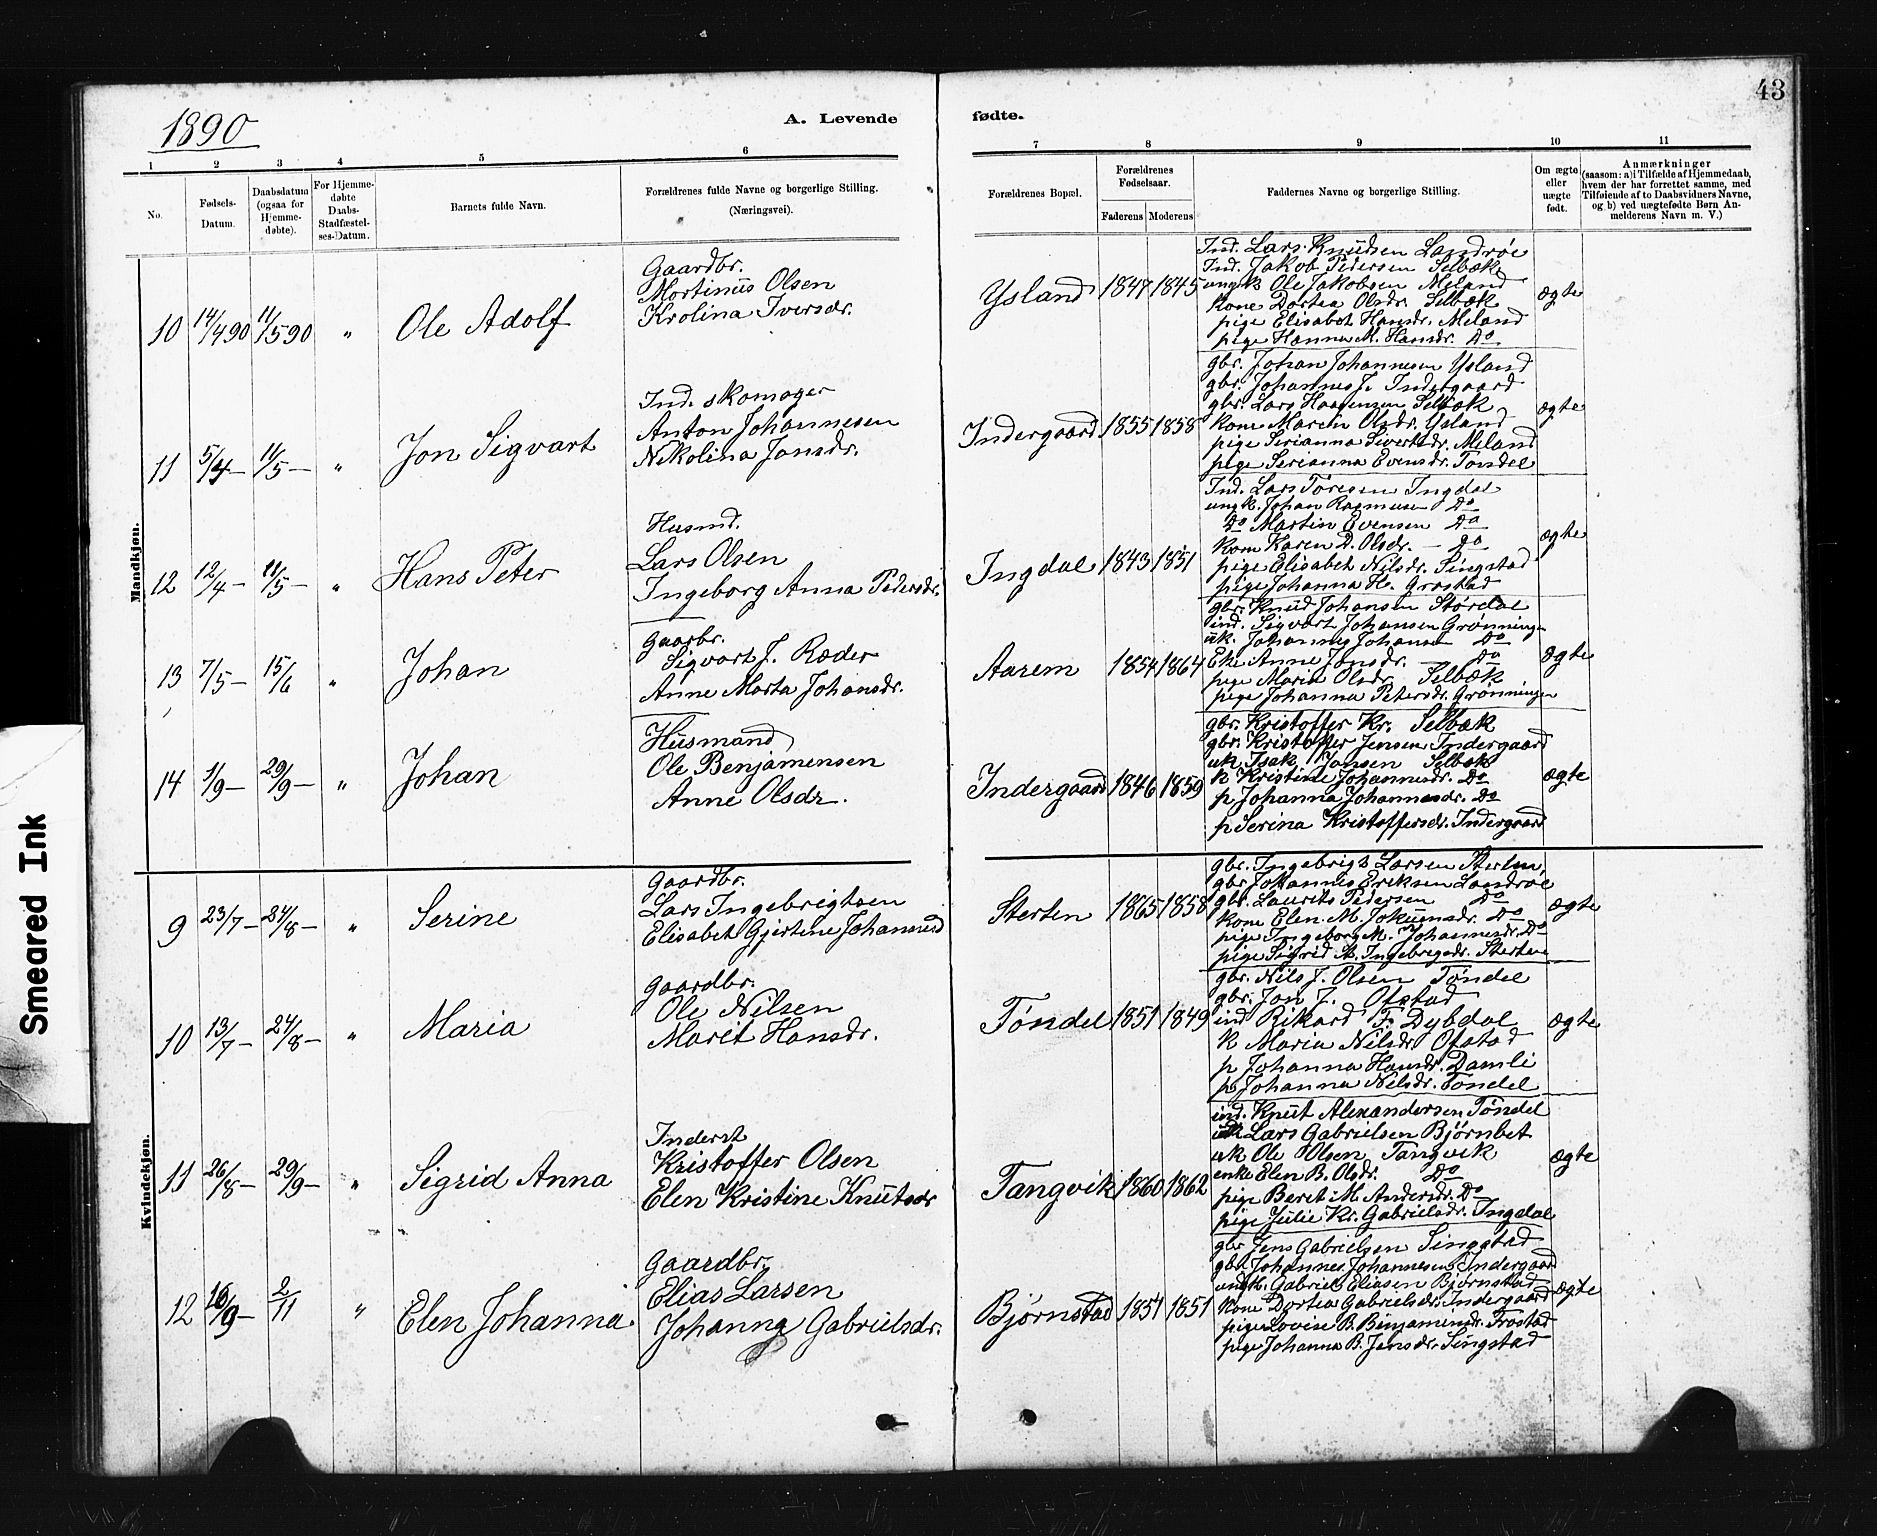 43
1890
A. Levende fødte.
1 2 3 4 5 6 7 8 9 10 11
No.
Fødsels-Datum.
Daabsdatum (ogsaa for Hjemme-døbte).
For Hjemme-døbte Daabs-Stadfæstel-ses-Datum.
Barnets fulde Navn.
Forældrenes fulde Navne og borgerlige Stilling. (Næringsvei).
Forældrenes Bopæl.
Forældrenes Fødselsaar.
Faderens Moderens
Faddernes Navne og borgerlige Stilling.
Om ægte eller uægte født.
Anmærkninger (saasom: a) i Tilfælde af Hjemmedaab, hvem der har forrettet samme, med Tilføiende af to Daabsvidners Navne, og b) ved uægtefødte Børn An-melderens Navn m. V.)
Mandkjøn.
10 14/4 90 11/5 90 " Ole Adolf
Gaardbr.
Martinus Olsen
Krolina Iversdr.
Ysland 1847 1845
Ind. Lars Knudsen Landrøe
Ind. Jakob Pedersen Selbæk
ungk Ole Jakobsen Meland
kone Dortea Olsdr. Selbæk
pige Elisabet Hansdr. Meland
pige Hanna M. Hansdr. Do
ægte
11 5/4 – 11/5 – " Jon Sigvart
Ind. skomager
Anton Johannesen
Nikolina Jonsdr.
Indergaard 1855 1858
gbr. Johan Johannesen Ysland
gbr. Johannes J. Indergaard
gbr. Lars Haagensen Selbæk
kone Maren Olsdr. Ysland
pige Serianna Sivertsdr. Meland
pige Serianna Evensdr. Tøndel
ægte
12 12/4 – 11/5 – " Hans Peter
Husmd.
Lars Olsen
Ingeborg Anna Pedersdr.
Ingdal 1843 1851
Ind. Lars Toresen Ingdal
ungk. Johan Rasmusen Do
Do Martin Evensen Do
kone Karen D. Olsdr. – Do
pige Elisabet Nilsdr. Singstad
pige Johanna H. Grostad
ægte
13 7/5 – 15/6 " Johan
Gaarbr.
Sigvart J. Ræder
Anne Marta Johansdr.
Aarem 1854 1864
gbr. Knud Johansen Størdal
ind. Sigvart Johansen Grønningen
uk. Johannes Johansen Do
Eke Anne Jonsdr. – Do
pige Maria Olsdr. Selbæk
pige Johanna Petersdr. Grønningen
ægte
14 1/9 – 29/9 – " Johan
Husmand
Ole Benjamensen
Anne Olsdr.
Indergaard 1846 1859
gbr. Kristoffer Kr. Selbæk
gbr. Kristoffer Jensen Indergaard
uk Isak Jonsen Selbæk
k Kristine Johannesdr. Do
p Johanna Johannesdr. Do
p Serina Kristoffersdr. Indergaard
ægte
Kvindekjøn.
9 23/7 – 24/8 – " Serine
Gaardbr.
Lars Ingebrigtsen
Elisabet Gjertine Johannesd
Sterten 1865 1858
gbr. Ingebrigt Larsen Sterten
gbr Johannes Eriksen Landrøe
gbr. Laurits Pedersen Do
kone Elen M. Jokumsdr. Do
pige Ingeborg M. Johannesdr. Do
pige Sigrid A. Ingebregsdr. Sterten
ægte
10 13/7 – 24/8 – " Maria
Gaardbr.
Ole Nilsen
Marit Hansdr.
Tøndel 1851 1849
gbr. Nils J. Olsen Tøndel
gbr. Jon J. Ofstad
ind Rikard T. Dybdal
k Maria Nilsdr Ofstad
p Johanna Hansdr. Damli
p Johanna Nelsdr. Tøndel
ægte
11 26/8 – 29/9 – " Sigrid Anna
Inderst
Kristoffer Olsen
Elen Kristine Knutsdr
Tangvik 1860 1862
ind. Knut Alexandersen Tøndel
uk Lars Gabrielsen Bjørnbet
uk Ole Olsen Tangvik
enke Elen B. Olsdr. Do
pige Beret M. Andersdr. Do
pige Julie Kr. Gabrielsdr. Ingdal
ægte
12 16/9 – 2/11 " Elen Johanna
Gaardbr.
Elias Larsen
Johanna Gabrielsdr.
Bjørnstad 1851 1851
gbr Jens Gabrielsen Singstad
gbr. Johannes Johannesen Indergaard
ungk. Gabriel Eliasen Bjørnstad
kone Dortea Gabrielsdr. Indergaard
pige Lovise B. Benjaminsdr. Frostad
pige Johanna B. Jensdr. Singstad
ægte
Smeared Ink